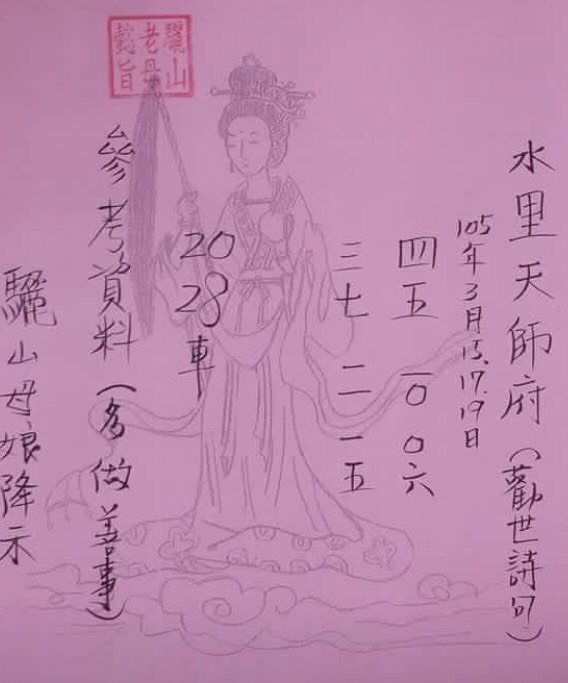 水里天師府(勸世詩句)
105年3月15.17.19日
四五 一0 0六
三七 二一 一五
20
28
車
參考資料(多做善事)
驪山母娘降示
驪山
老母
懿旨